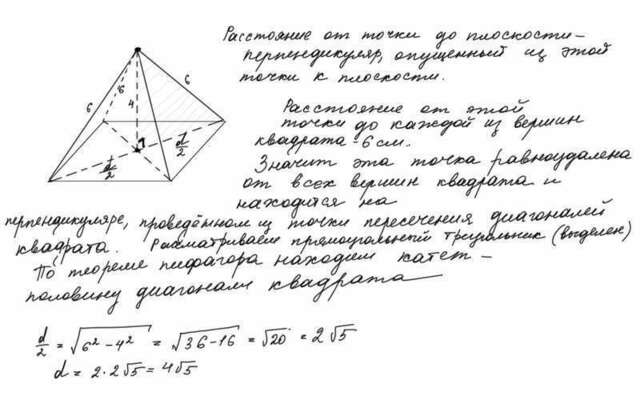 Расстояние от точки до плоскости –
перпендикуляр, опущенный из этой
точки к плоскости.
6
6
6
4
d/2
d/2
Расстояние от этой
точки до каждой из вершин
квадрата - 6 см.
Значит эта точка равноудалена
от всех вершин квадрата и
находится на
перпендикуляре, проведённом из точки пересечения диагоналей
квадрата. Рассматриваем прямоугольный треугольник (выделен)
По теореме пифагора находим катет –
половину диагонали квадрата
d/2 = √(6² – 4²) = √(36–16) = √20 = 2√5
d = 2·2√5 = 4√5